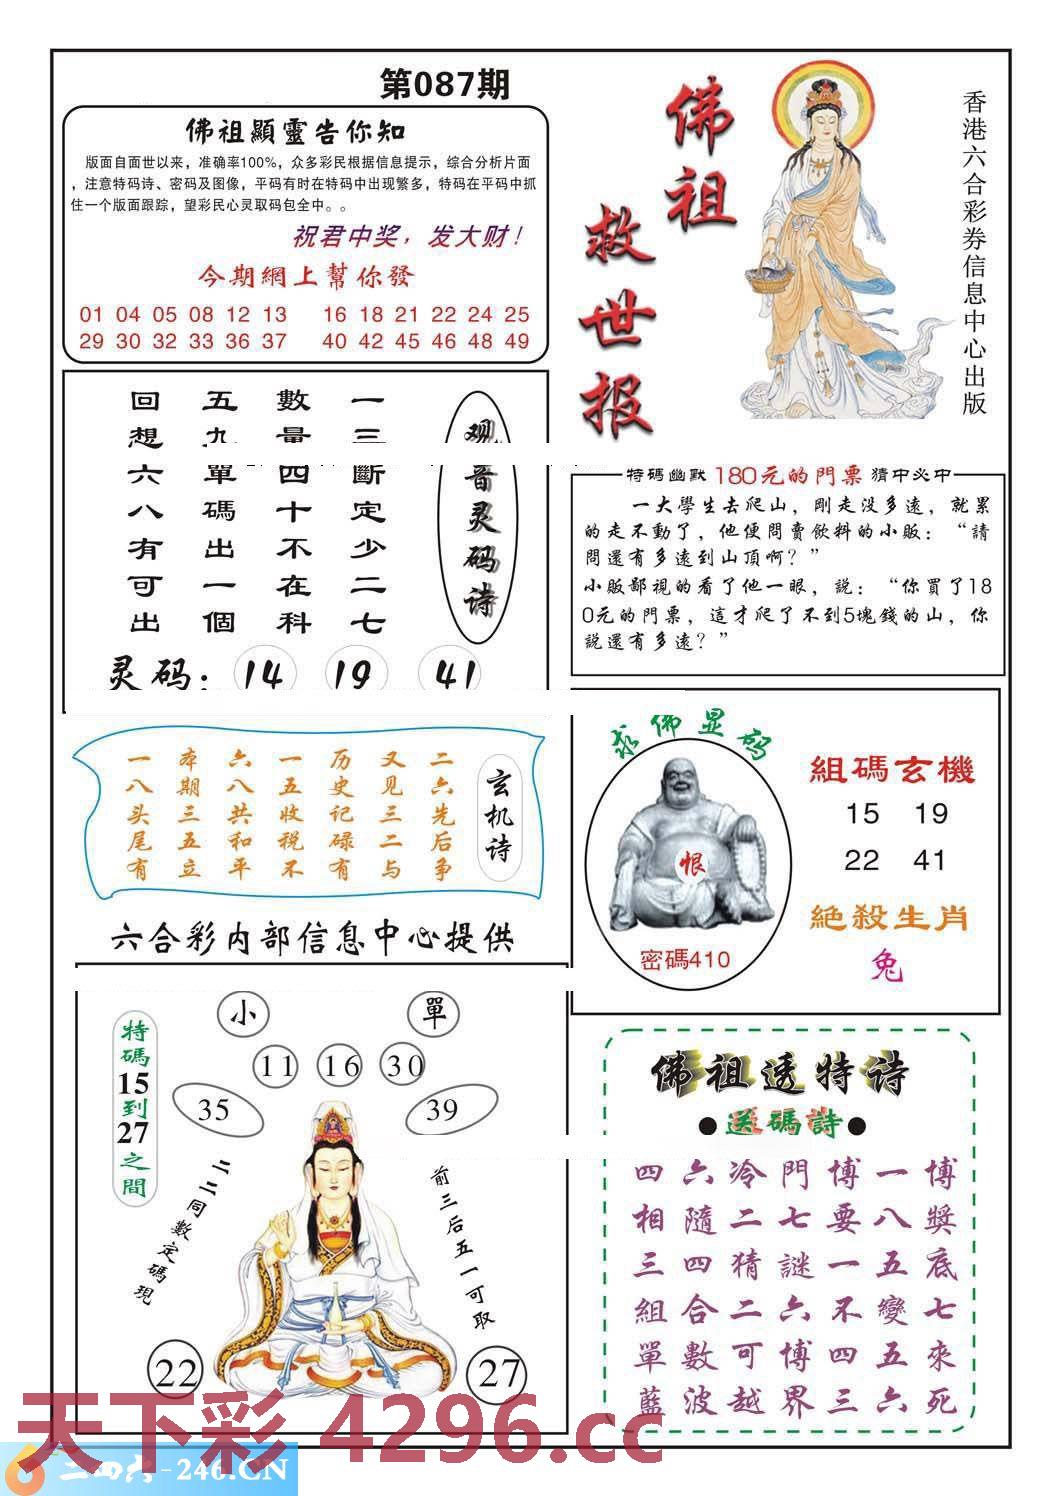 第087期
佛祖顯靈告你知
版面自面世以来，准确率100%，众多彩民根据信息提示，综合分析片面
，注意特码诗、密码及图像，平码有时在特码中出现繁多，特码在平码中抓
住一个版面跟踪，望彩民心灵取码包全中。。
祝君中奖，发大财！
今期網上幫你發
01 04 05 08 12 13 16 18 21 22 24 25
29 30 32 33 36 37 40 42 45 46 48 49
佛祖
救世报
香港六合彩券信息中心出版
观音灵码诗
一三斷定少二七
數量四十不在科
五九單碼出一個
回想六八有可出
灵码：14 19 41
特碼幽默 180元的門票 猜中必中
一大學生去爬山，剛走没多遠，就累
的走不動了，他便問賣飲料的小販：“請
問還有多遠到山頂啊？”
小販鄙視的看了他一眼，説：“你買了18
0元的門票，這才爬了不到5塊錢的山，你
説還有多遠？”
玄机诗
二六先后争
又见三二与
历史记碌有
一五收税不
六八共和平
本期三五立
一八头尾有
六合彩内部信息中心提供
求佛显码
恨
密碼410
組碼玄機
15 19
22 41
絶殺生肖
兔
小
單
11 16 30
35
39
特碼15到27之間
二二同數定碼現
前三后五一可取
22
27
佛祖透特诗
●送碼詩●
四六冷門博一博
相隨二七要八獎
三四猜謎一五底
組合二六不變七
單數可博四五來
藍波越界三六死
天下彩 4296.cc
二四六-246.CN